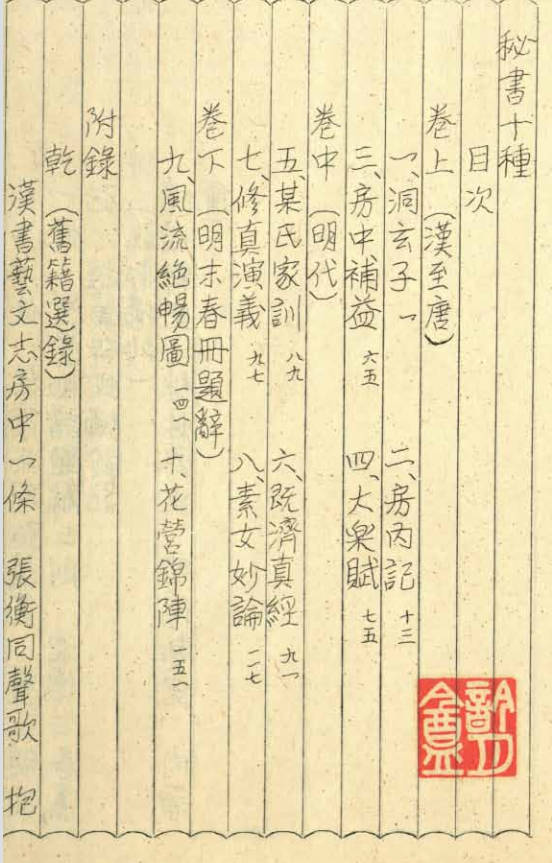 秘書十種
目次
卷上（漢至唐）
一、洞玄子 一 二、房内記 十三
三、房中補益 六五 四、大樂賦 七五
卷中（明代）
五、某氏家訓 八九 六、既濟真經 九一
七、修真演義 九七 八、素女妙論 一一七
卷下（明末春冊題辭）
九、風流絕暢圖 一四一 十、花營錦陣 一五一
附錄
乾（舊籍選錄）
漢書藝文志房中一條 張衡同聲歌 抱